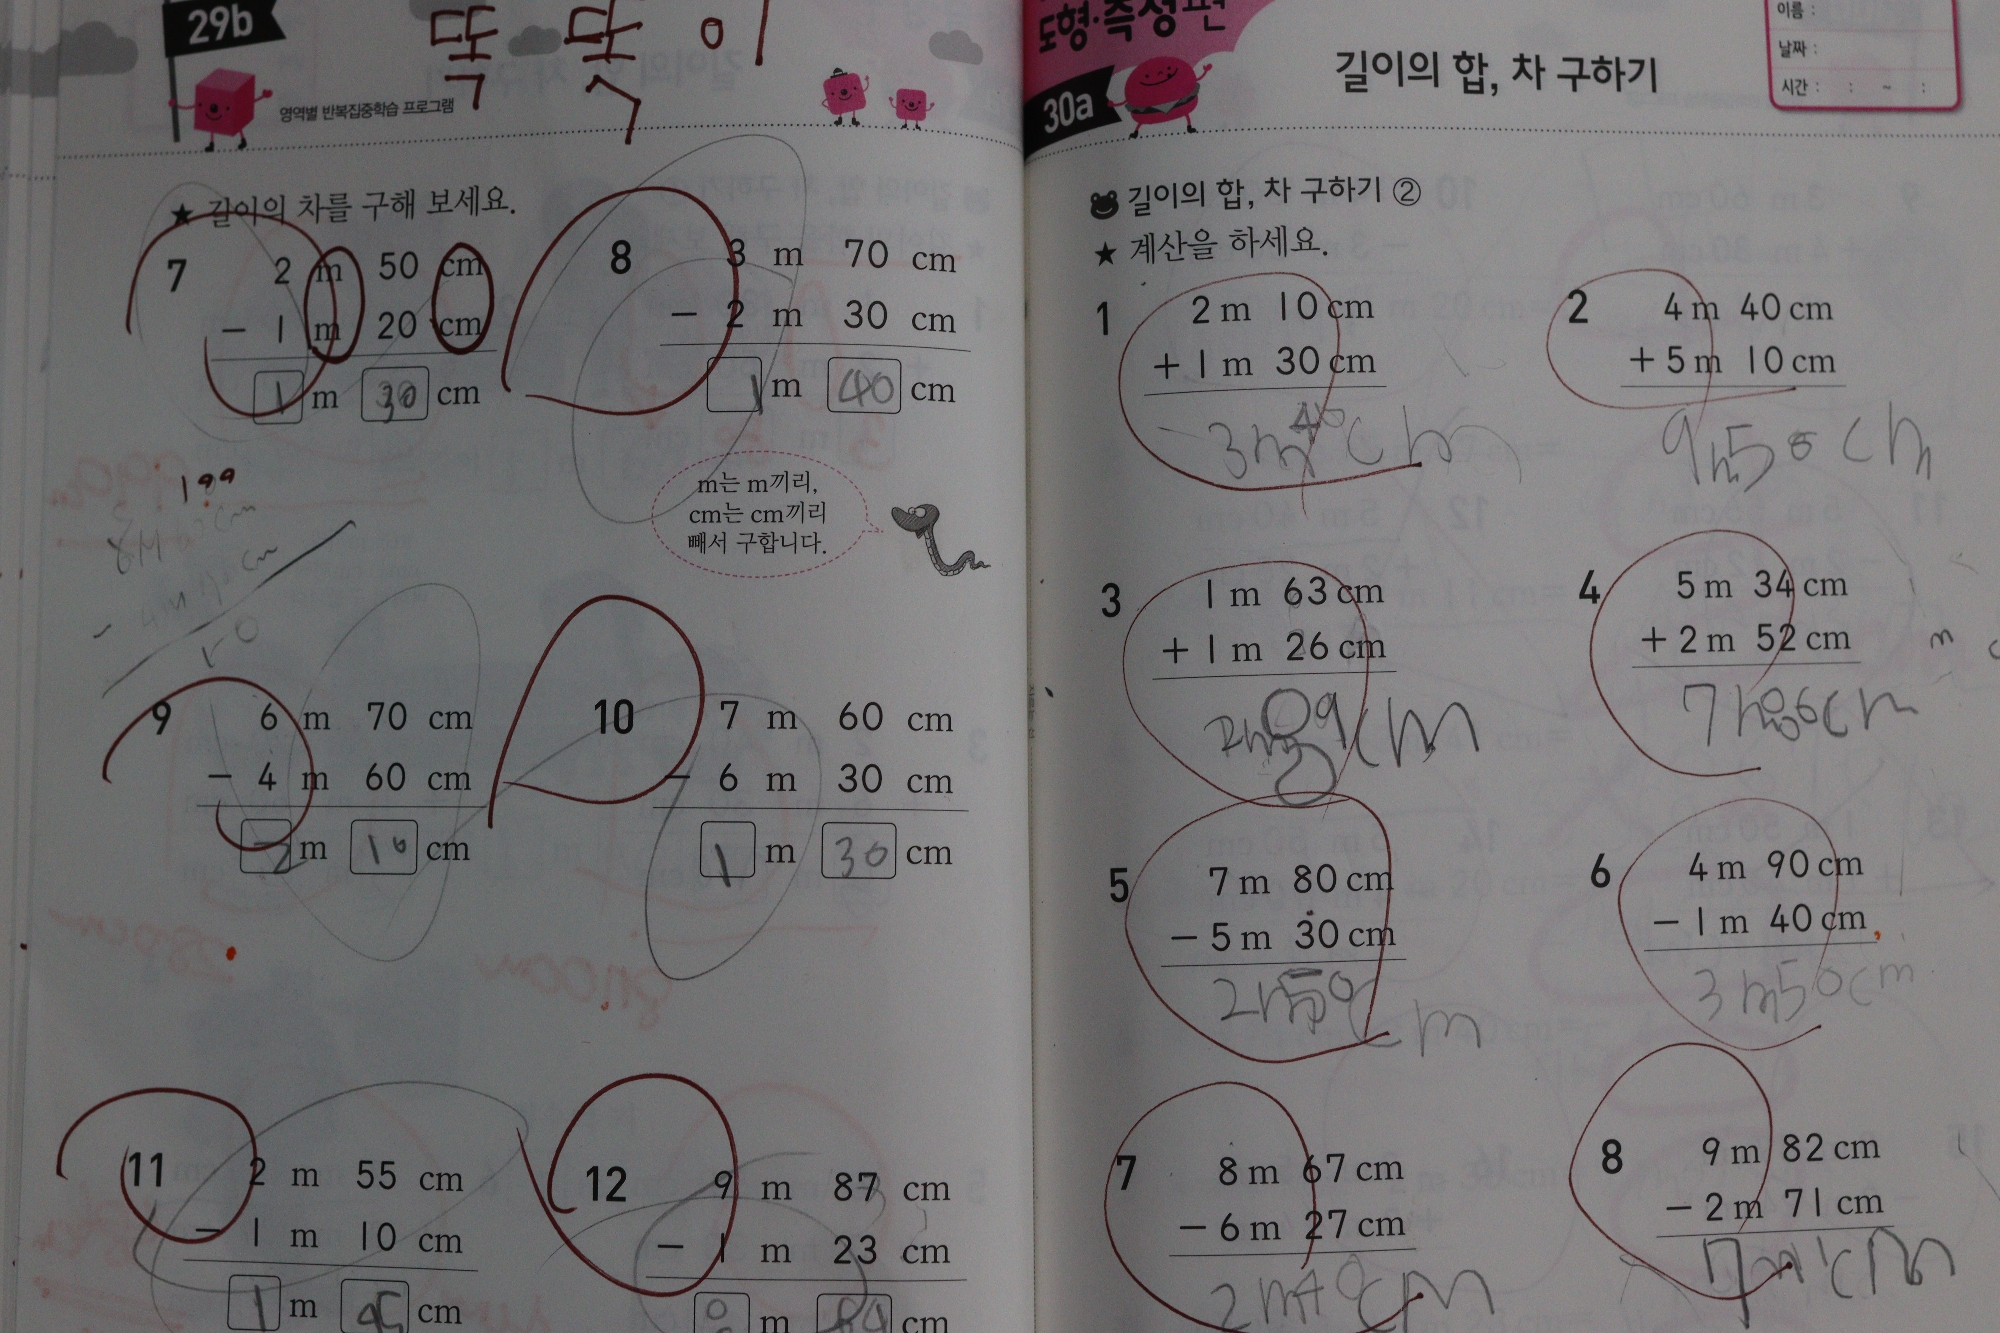 29b
똑 똑 이
영역별 반복집중학습 프로그램
★ 길이의 차를 구해 보세요.
7 2 m 50 cm
- 1 m 20 cm
1 m 30 cm
8 3 m 70 cm
- 2 m 30 cm
1 m 40 cm
m는 m끼리,
cm는 cm끼리
빼서 구합니다.
199
9 6 m 70 cm
- 4 m 60 cm
2 m 10 cm
10 7 m 60 cm
- 6 m 30 cm
1 m 30 cm
11 2 m 55 cm
- 1 m 10 cm
1 m 45 cm
12 9 m 87 cm
- 1 m 23 cm
8 m 64 cm
도형·측정편
30a
길이의 합, 차 구하기
이름 :
날짜 :
시간 : : ~ :
길이의 합, 차 구하기 ②
★ 계산을 하세요.
1 2 m 10 cm
+ 1 m 30 cm
3m 40cm
2 4 m 40 cm
+ 5 m 10 cm
9m 50cm
3 1 m 63 cm
+ 1 m 26 cm
2m 89cm
4 5 m 34 cm
+ 2 m 52 cm
7m 86cm
5 7 m 80 cm
- 5 m 30 cm
2m 50cm
6 4 m 90 cm
- 1 m 40 cm
3m50cm
7 8 m 67 cm
- 6 m 27 cm
2m40cm
8 9 m 82 cm
- 2 m 71 cm
7m 11cm